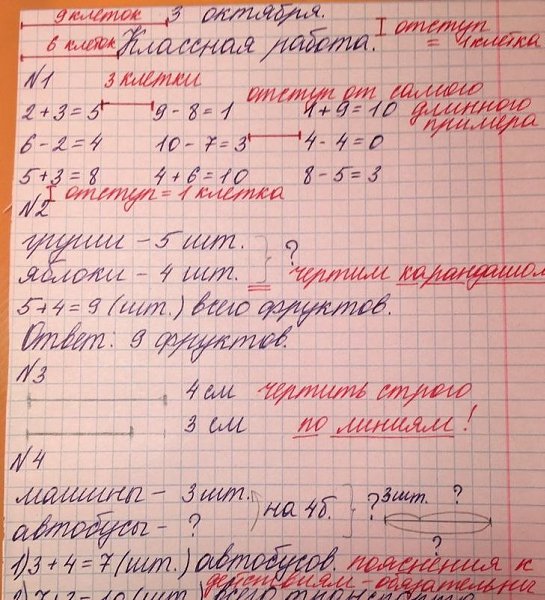 9 клеток 3 октября.
6 клеток Классная работа. отступ = 1 клетка
N1 3 клетки
отступ от самого длинного примера
2+3=5 9-8=1 1+9=10
6-2=4 10-7=3 4-4=0
5+3=8 4+6=10 8-5=3
отступ = 1 клетка
N2
груши - 5 шт. } ?
яблоки - 4 шт. = чертим карандашом
5+4=9 (шт.) всего фруктов.
Ответ: 9 фруктов.
N3
4 см чертить строго
3 см по линиям!
N4
машины - 3 шт. на 4 б. } ? 3 шт. ?
автобусы - ? ?
1) 3+4=7 (шт.) автобусов. пояснения к
действиям - обязательны
2) 7+3=10 (шт.) всего транспорта